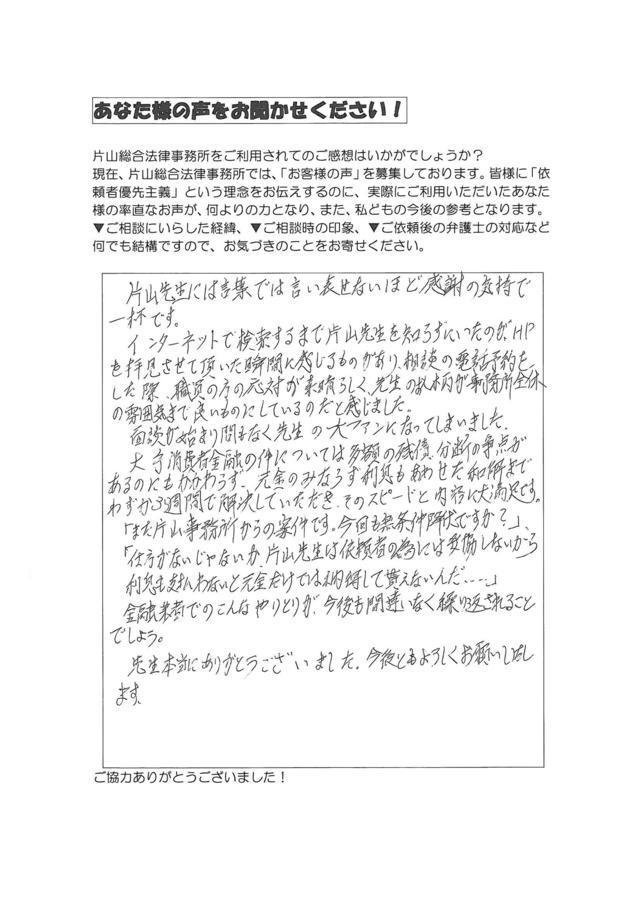 あなた様の声をお聞かせください！
片山総合法律事務所をご利用されてのご感想はいかがでしょうか？
現在、片山総合法律事務所では、「お客様の声」を募集しております。皆様に「依
頼者優先主義」という理念をお伝えするのに、実際にご利用いただいたあなた
様の率直なお声が、何よりの力となり、また、私どもの今後の参考となります。
▼ご相談にいらした経緯、▼ご相談時の印象、▼ご依頼後の弁護士の対応など
何でも結構ですので、お気づきのことをお寄せください。
片山先生には言葉では言い表せないほど感謝の気持で
一杯です。
インターネットで検索するまで片山先生を知らずにいたのが、HP
を拝見させて頂いた瞬間に感じるものがあり、相談の電話予約を
した際、職員の方の応対が素晴らしく、先生のお人柄が事務所全体
の雰囲気まで良いものにしているのだと感じました。
面談が始まり間もなく先生の大ファンになってしまいました。
大手消費者金融の件については多額の残債、分断の争点が
あるのにもかかわらず、元金のみならず利息もあわせた和解まで
わずか3週間で解決していただき、そのスピードと内容に大満足です。
「また片山事務所からの案件です。今回も無条件降伏ですか？」、
「仕方がないじゃないか、片山先生は依頼者の為には妥協しないから
利息も支払わないと元金だけでは納得して貰えないんだ……」
金融業者でのこんなやりとりが、今後も間違いなく繰り返されること
でしょう。
先生本当にありがとうございました。今後ともよろしくお願い致し
ます。
ご協力ありがとうございました！